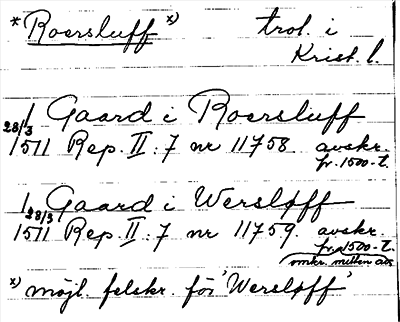 *Roersluff *) trol. i
Krist. l.
1 Gaard i Roersluff
28/3
1511 Rep. II: 7 nr 11758. avskr.
fr. 1500-t.
1 Gaard i Wersløff
28/3
1511 Rep. II: 7 nr 11759. avskr.
fr. 1500-t.
omkr. mitten av
*) möjl. felskr. för 'Wersløff'